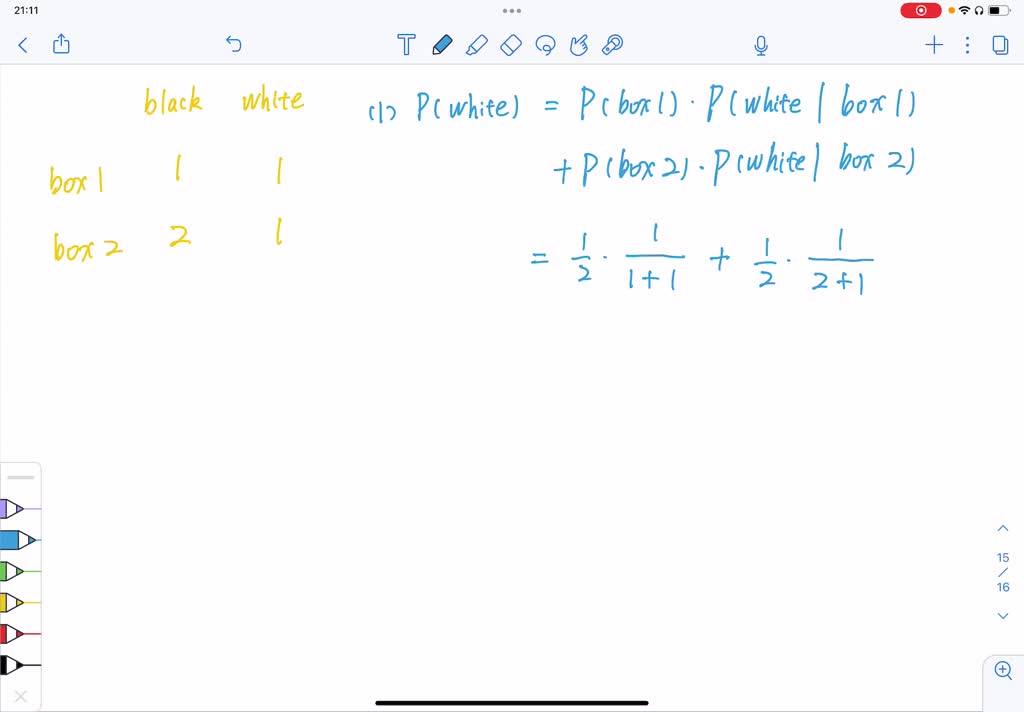 21:11
black white
box 1 1 1
box 2 2 1
(1) P(white) = P(box 1) · P(white | box 1)
+ P(box 2) · P(white | box 2)
= 1/2 · 1/(1+1) + 1/2 · 1/(2+1)
T
15
/
16